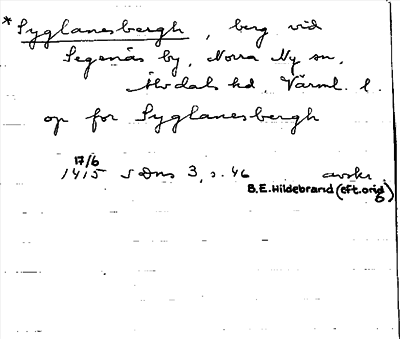 *Syglanesbergh, berg vid
Segenäs by, Norra Ny sn,
Älvdals hd, Värml. l.
op for Syglanesbergh
17/6
1415 SDns 3, s. 46 avskr.
B.E. Hildebrand (eft. orig)